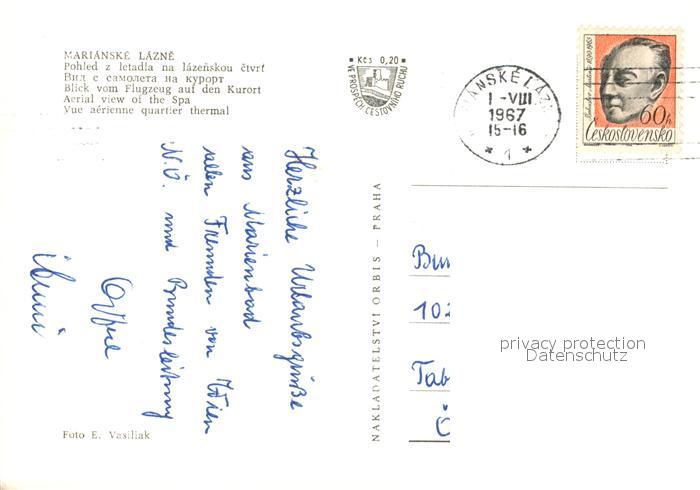 MARIÁNSKÉ LÁZNĚ
Pohled z letadla na lázeňskou čtvrť
Вид с самолета на курорт
Blick vom Flugzeug auf den Kurort
Aerial view of the Spa
Vue aérienne quartier thermal
Kčs 0,20
VE PROSPĚCH CESTOVNÍHO RUCHU
IÁNSKÉ LÁZ
1 -VIII
1967
15-16
1
60h
Československo
Herzliche Urlaubsgrüße
aus Marienbad
allen Freunden von Wien
N.Ö. und Bundesleitung
NAKLADATELSTVÍ ORBIS – PRAHA
Bun
102
Tab
Ö
privacy protection
Datenschutz
Foto E. Vasiliak